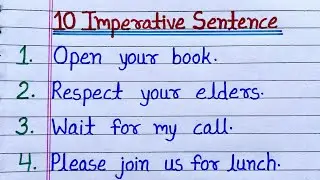 10 Imperative Sentence
1. Open your book.
2. Respect your elders.
3. Wait for my call.
4. Please join us for lunch.